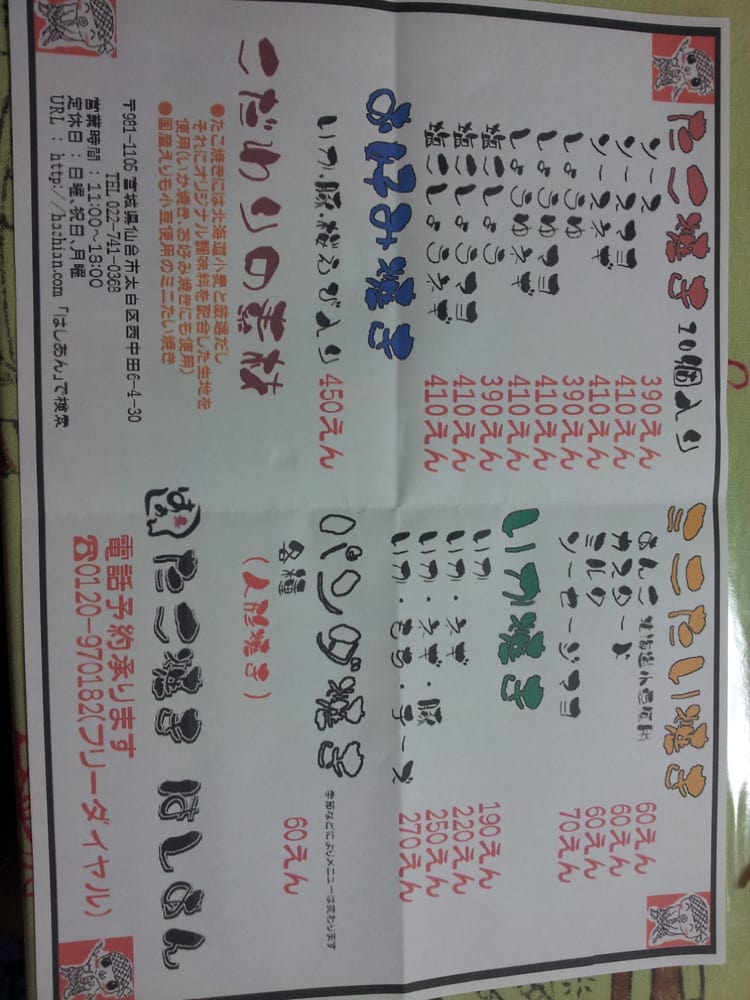 たこ焼き 10個入り
ソース 390えん
ソースマヨ 410えん
ソースネギ 410えん
しょうゆ 390えん
しょうゆマヨ 410えん
しょうゆネギ 410えん
塩こしょう 390えん
塩こしょうマヨ 410えん
塩こしょうネギ 410えん
お好み焼き
いか・豚・桜えび入り 450えん
こだわりの素材
●たこ焼きには北海道小麦と厳選だし
それにオリジナル調味料を配合した生地を
使用(いか焼き・お好み焼きにも使用)
●国産えりも小豆使用のミニたい焼き
〒981-1105 宮城県仙台市太白区西中田6-4-30
TEL 022-741-0368
営業時間：11:00～18:00
定休日：日曜、祝日、月曜
URL : http://hashian.com 「はしあん」で検索
ミニたい焼き
あんこ 北海道小豆使用 60えん
カスタード 60えん
ミルク 60えん
ソーセージマヨ 70えん
いか焼き
いか 190えん
いか・ネギ 220えん
いか・ネギ・豚 250えん
いか・もち・チーズ 270えん
パンダ焼き 季節などによりメニューは変わります
各種 60えん
(人形焼き)
たこ焼き はしあん
電話予約承ります
☎0120-970182(フリーダイヤル)